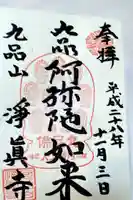 奉拝
平成二十八年
十一月三日
九品
阿弥陀如来
九品山
淨眞寺